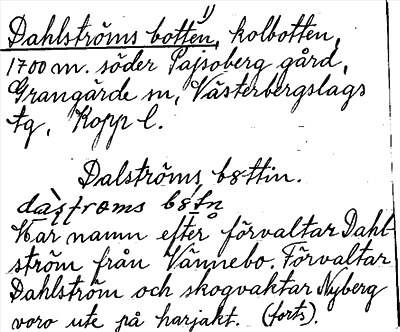 Dahlströms botten,¹⁾ kolbotten,
1700 m. söder Pajsoberg gård,
Grangärde sn, Västerbergslags
tg, Kopp l.
Dalströms bottin.
Har namn efter förvaltar Dahl-
ström från Vännebo. Förvaltar
Dahlström och skogvaktar Nyberg
voro ute på harjakt. (forts).